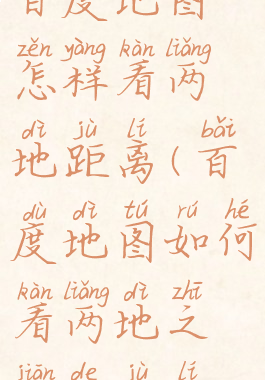 百度地图
zěn yàng kàn liǎng
怎样看两
dì jù lí bǎi
地距离(百
dù dì tú rú hé
度地图如何
kàn liǎng dì zhī
看两地之
jiān de jù lí